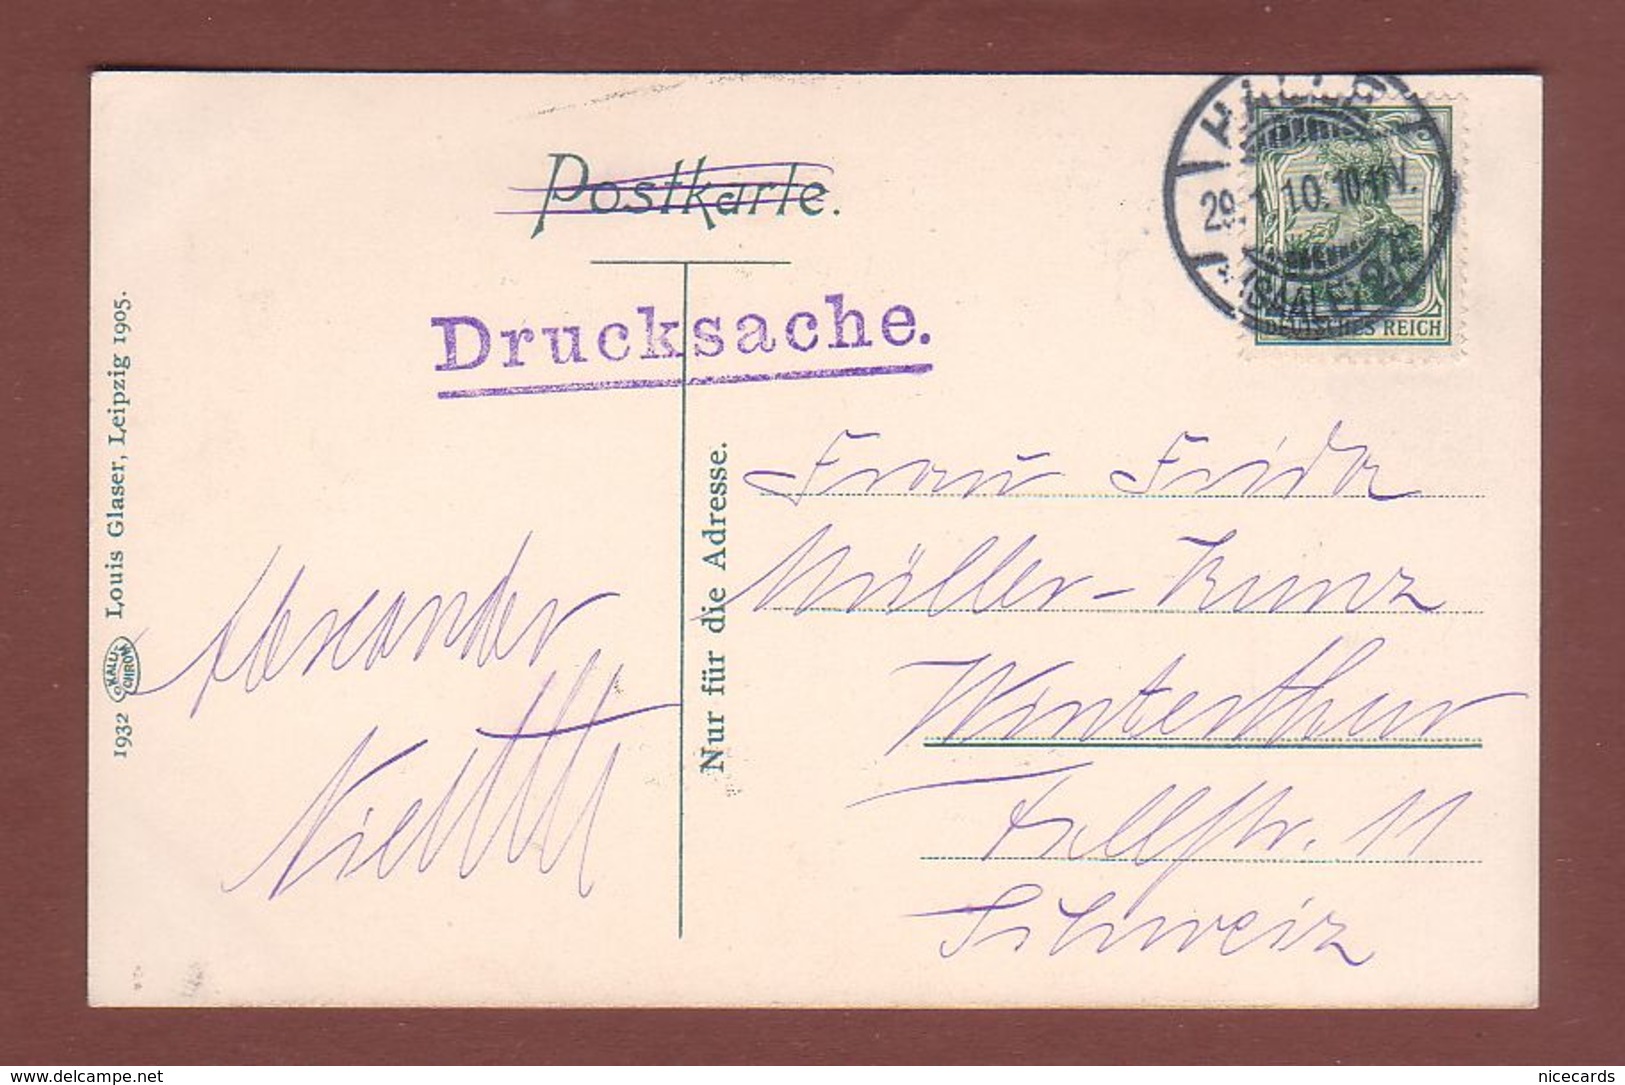 Postkarte.
Drucksache.
HALLE
29.1.10.10-11V.
(SAALE) 2
DEUTSCHES REICH
Nur für die Adresse.
1932 KALLO CHROM Louis Glaser, Leipzig 1905.
Frau Frida
Müller-Kunz
Winterthur
11
Schweiz
Alexander
delcampe.net
nicecards